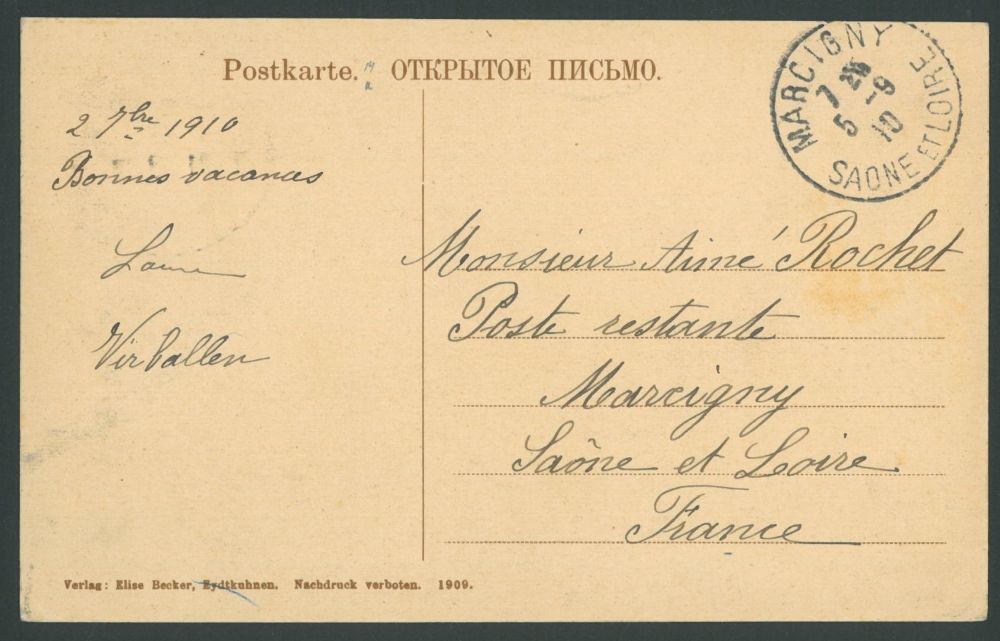 Postkarte. ОТКРЫТОЕ ПИСЬМО.
MARCIGNY
7 25
5 -9
10
SAONE ET LOIRE
2 7bre 1910
Bonnes vacances
Virballen
Monsieur Aimé Rochet
Poste restante
Marcigny
Saône et Loire
France
Verlag: Elise Becker, Eydtkuhnen. Nachdruck verboten. 1909.